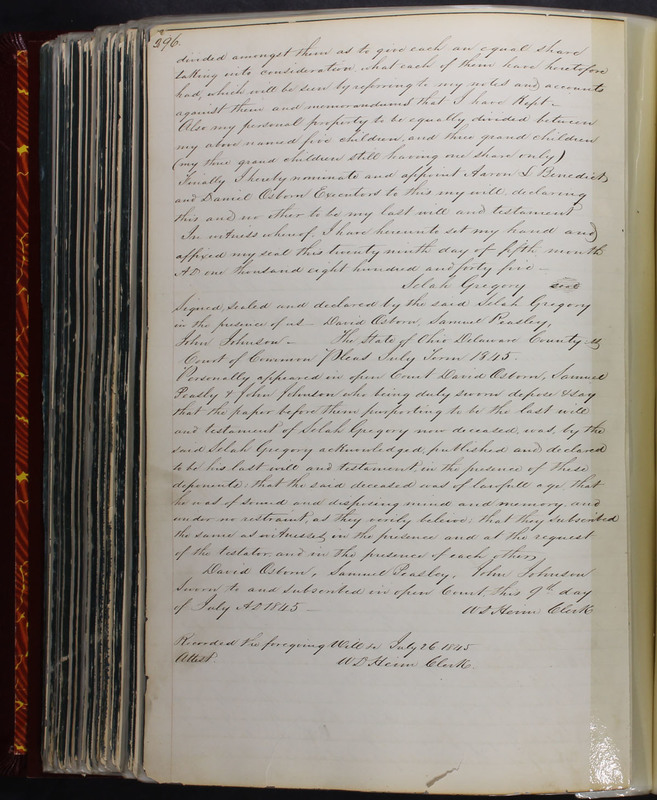 396.
divided amongst them as to give each an equal share
talking into consideration what each of them have heretofore
had, which will be seen by referring to my notes and accounts
against them and memorandums that I have Kept –
Also my personal property to be equally divided between
my above named five children, and three grand children
(my three grand children still having one share only)
Finially I hereby nominate and appoint Aaron L Benedict
and Daniel Osborn Executors to this my will declaring
this and no other to be my last will and testament
In witness whereof. I have hereunto set my hand and
affixed my seal this twenty ninth day of fifth month
AD. one thousand eight hundred and forty five –
Selah Gregory seal
Signed, sealed and declared by the said Selah Gregory
in the presence of us – David Osborn, Samuel Peasley,
John Johnson – The State of Ohio Delaware County ss
Court of Common Pleas July Term 1845.
Personally appeared in open Court David Osborn, Samuel
Peasly & John Johnson who being duly sworn depose & say
that the paper before them purporting to be the last will
and testament of Selah Gregory now deceased, was, by the
said Selah Gregory acknowledged, published and declared
to be his last will and testament, in the presence of these
deponents: that the said deceased was of lawfull age, that
he was of sound and disposing mind and memory, and
under no restraint, as they verely believe: that they subscribed
the same as witnesses, in the presence and at the request
of the testator and in the presence of each other,
David Osborn, Samuel Peasley, John Johnson
Sworn to and subscribed in open Court, this 9th day
of July AD 1845 – W D Heim Clerk
Recorded the foregoing Will July 26 1845
Attest: W D Heim Clerk.